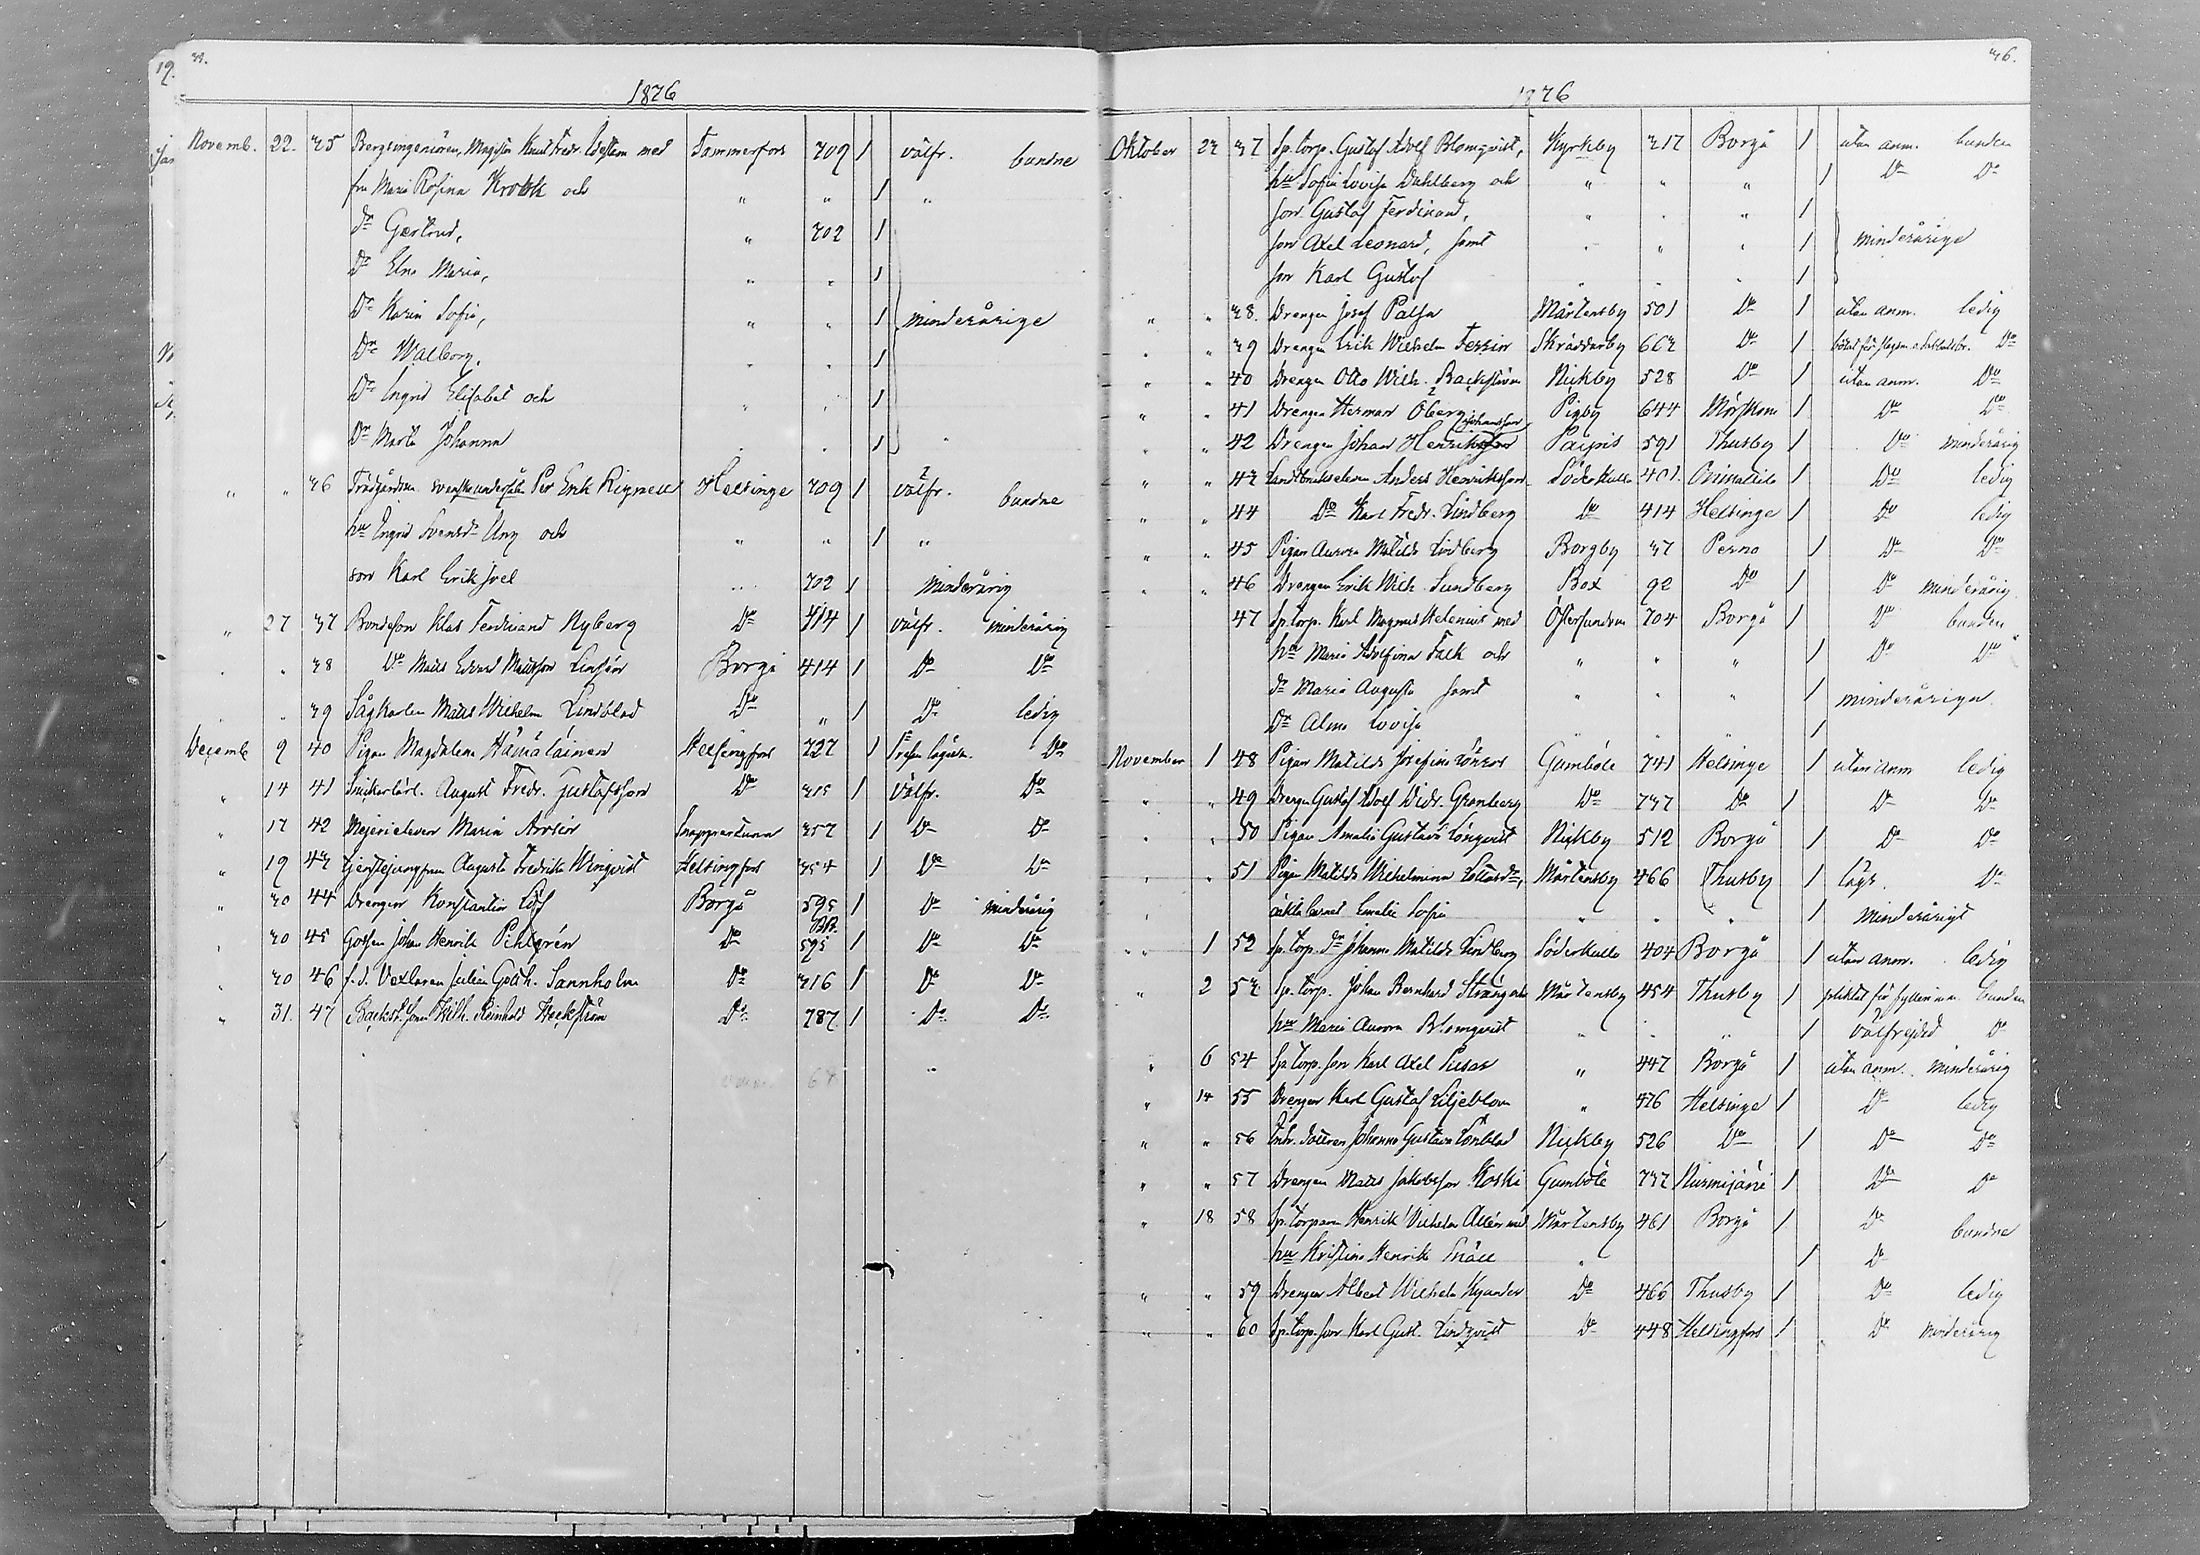 1876
Novemb. 22. 35 Bergsingeniören, Magister Knut Fredr. med Tammerfors 709 1 välfr. bundne
fru Maria Rosina Krook och " " 1 "
dr Gertrud, " 702 1
Dr Elna Maria, " " 1
Dr Karin Sofia, " " 1 minderårige
Dr Walborg, " " 1
Dr Ingrid Elisabet och " " 1
Dr Marta Johanna " " 1
" " 36 Trädgårdsm. svenska undersåten Per Erik Rignell Helsinge 709 1 välfr. bundne
hu Ingrid Svensdr Ung och " " 1 "
son Karl Erik Joel 702 1 minderårig
" 27 37 Bondeson Klas Ferdinand Nyberg Do 414 1 välfr. minderårig
" " 38 Do Mats Edvard Mattsson Borgå 414 1 Do Do
" " 39 Sågkarlen Mats Wilhelm Lindblad Do " 1 Do ledig
Decemb. 9 40 Pigan Magdalena Hämäläinen Helsingfors 727 1 Do
" 14 41 Snickarlärl. August Fredr. Gustafsson Do 315 1 välfr. Do
" 17 42 Mejerieleven Maria Snappertuna 357 1 Do Do
" 19 43 Tjenstejungfrun Augusta Fredrika Winqvist Helsingfors 354 1 Do Do
" 30 44 Drengen Konstantin Löf Borgå 595 1 Do minderårig
BB.
" 30 45 Gossen Johan Henrik Pihlgrén Do 595 1 Do Do
" 30 46 f.d. Vexlaren Julius Gotth. Sannholm Do 316 1 Do Do
" 31. 47 Backst. son Wilh. Reinhold Heckström Do 787 1 Do Do
36.
1876
Oktober 23 37 Sp. torp. Gustaf Adolf Blomqvist, Kyrkby 317 Borgå 1 utan anm. bunden
hu Sofia Lovisa Dahlberg och " " " 1 Do Do
son Gustaf Ferdinand, " " " 1
son Axel Leonard, samt " " " 1 minderårige
son Karl Gustaf " " " 1
" " 38. Drengen Josef Palsa Mårtensby 501 Do 1 utan anm. ledig
" " 39 Drengen Erik Wilhelm Skräddarby 663 Do 1 Do
" " 40 Drengen Otto Wilh. Nickby 528 Do 1 utan anm. Do
" " 41 Drengen Herman Öberg Pigby 644 Mörskom 1 Do Do
Johansson
" " 42 Drengen Johan Henriksson Paipis 591 Thusby 1 Do minderårig
" " 43 Landtbrukseleven Anders Henriksson Söderkulla 401. Orimattila 1 Do ledig
" " 44 Do Karl Fredr. Lindberg Do 414 Helsinge 1 Do ledig
" " 45 Pigan Aurora Matilda Lindberg Borgby 37 Perno 1 Do Do
" " 46 Drengen Erik Wilh. Sundberg Box 92 Do 1 Do minderårig
47 Sp. torp. Karl Magnus Helenius med Östersundom 704 Borgå 1 Do bunden
hu Maria Adolfina Falk och " " " 1 Do Do
dr Maria Augusta samt " " " 1 minderåriga
Dr Alma Lovisa " " 1
November 1 48 Pigan Matilda Josefina Lönros Gumböle 741 Helsinge 1 utan anm ledig
" " 49 Drengen Gustaf Adolf Didr. Grönberg Do 737 Do 1 Do Do
" " 50 Pigan Amalia Gustava Lönqvist Nickby 512 Borgå 1 Do Do
" " 51 Pigan Matilda Wilhelmina Mårtensby 466 Thusby 1 lägr. Do
oäkta barnet Emelie Sofia " " " 1 minderårigt
" 1 52 Sp. torp. dr Johanna Matilda Lindberg Söderkulla 404 Borgå 1 utan anm. ledig
" 2 53 Sp. torp. Johan Bernhard Mårtensby 454 Thusby 1 pliktat för fylleri bunden
hu Maria Aurora Blomqvist " " " 1 välfrejdad Do
" 6 54 Sp. torp. son Karl Axel " 447 Borgå 1 utan anm. minderårig
" 14 55 Drengen Karl Gustaf Liljeblom " 476 Helsinge 1 Do ledig
" " 56 Inh. dottren Johanna Gustava Lönblad Nickby 526 Do 1 Do Do
" " 57 Drengen Mats Jakobsson Koski Gumböle 737 Nurmijärvi 1 Do Do
" 18 58 Sp. torparen Henrik Wilhelm Allén med Mårtensby 461 Borgå 1 Do bundne
hu Kristina Henrika Snäll " 1 Do
" " 59 Drengen Albert Wilhelm Kyander Do 466 Thusby 1 Do ledig
" " 60 Sp. torp. son Karl Gust. Lindqvist Do 448 Helsingfors 1 Do minderårig